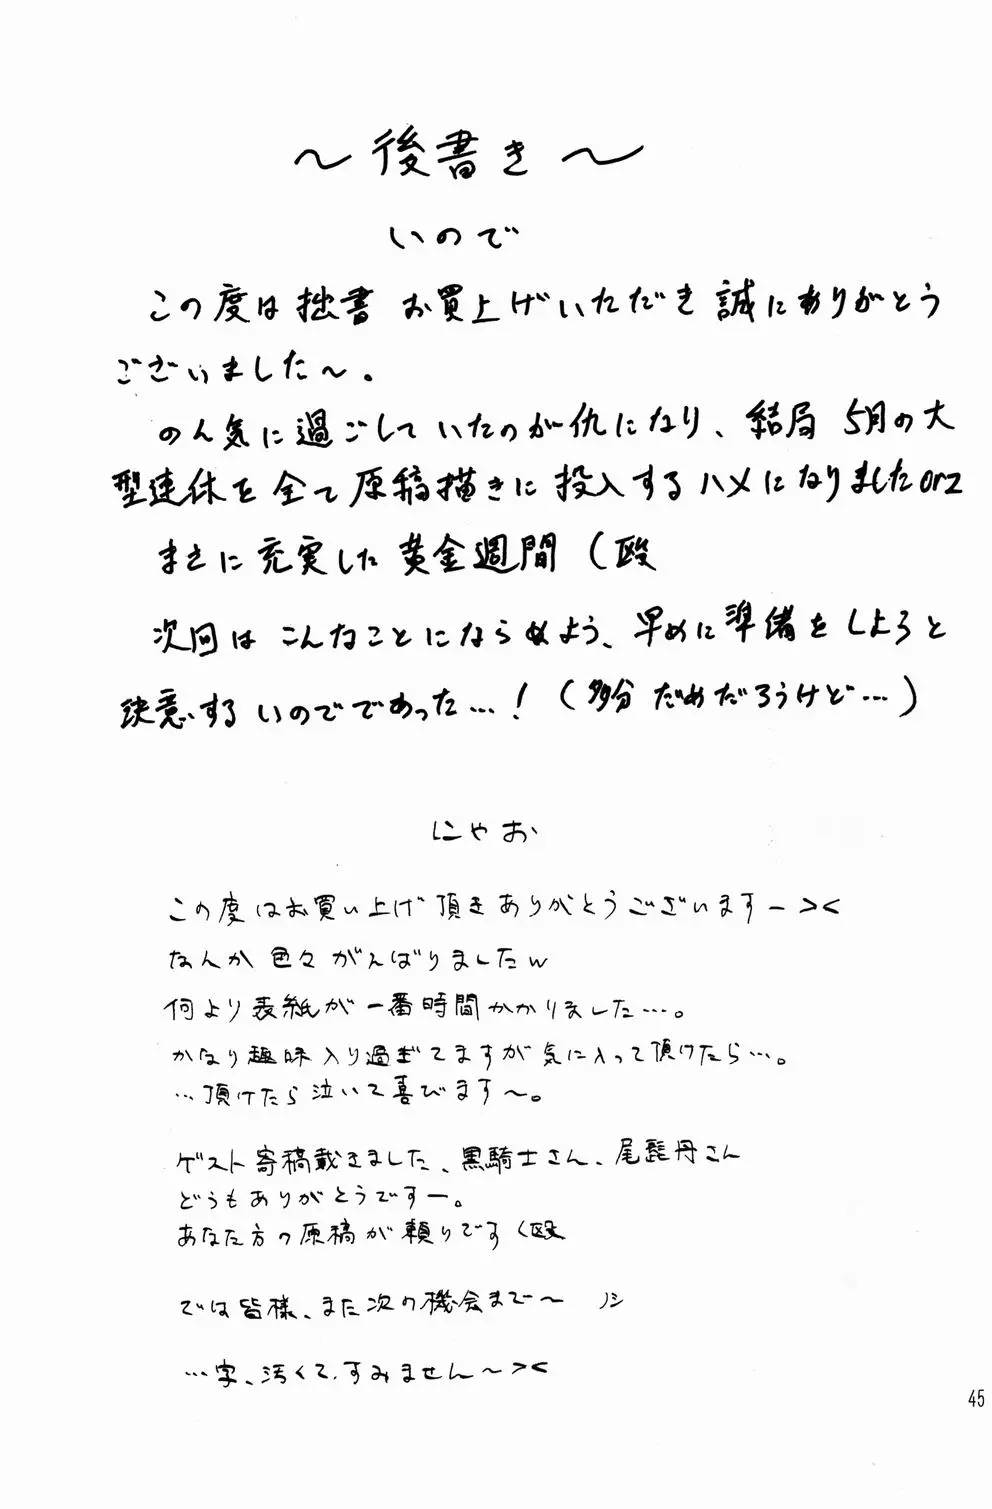 ～後書き～
いので
この度は拙書 お買上げいただき誠にありがとう
ございました～。
のん気に過ごしていたのが仇になり、結局 5月の大
型連休を全て原稿描きに投入するハメになりましたorz
まさに充実した黄金週間（殴
次回はこんなことにならぬよう、早めに準備をしよろと
決意するいのでであった…！（多分 だめだろうけど…）
にゃお
この度はお買い上げ頂きありがとうございますー><
なんか色々がんばりましたw
何より表紙が一番時間かかりました…。
かなり趣味入り過ぎてますが気に入って頂けたら…。
…頂けたら泣いて喜びます～。
ゲスト寄稿戴きました、黒騎士さん、尾髭丹さん
どうもありがとうですー。
あなた方の原稿が頼りです（殴
では皆様、また次の機会まで～ ノシ
…字、汚くて、すみません～><
45